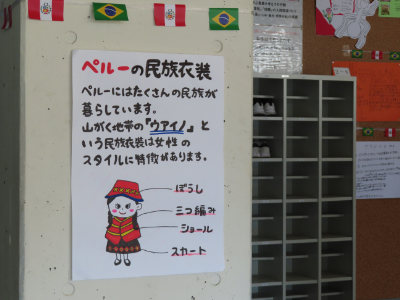 ペルーの民族衣装
ペルーにはたくさんの民族が
暮らしています。
山がく地帯の『ウアイノ』と
いう民族衣装は女性の
スタイルに特徴があります。
ぼうし
三つ編み
ショール
スカート